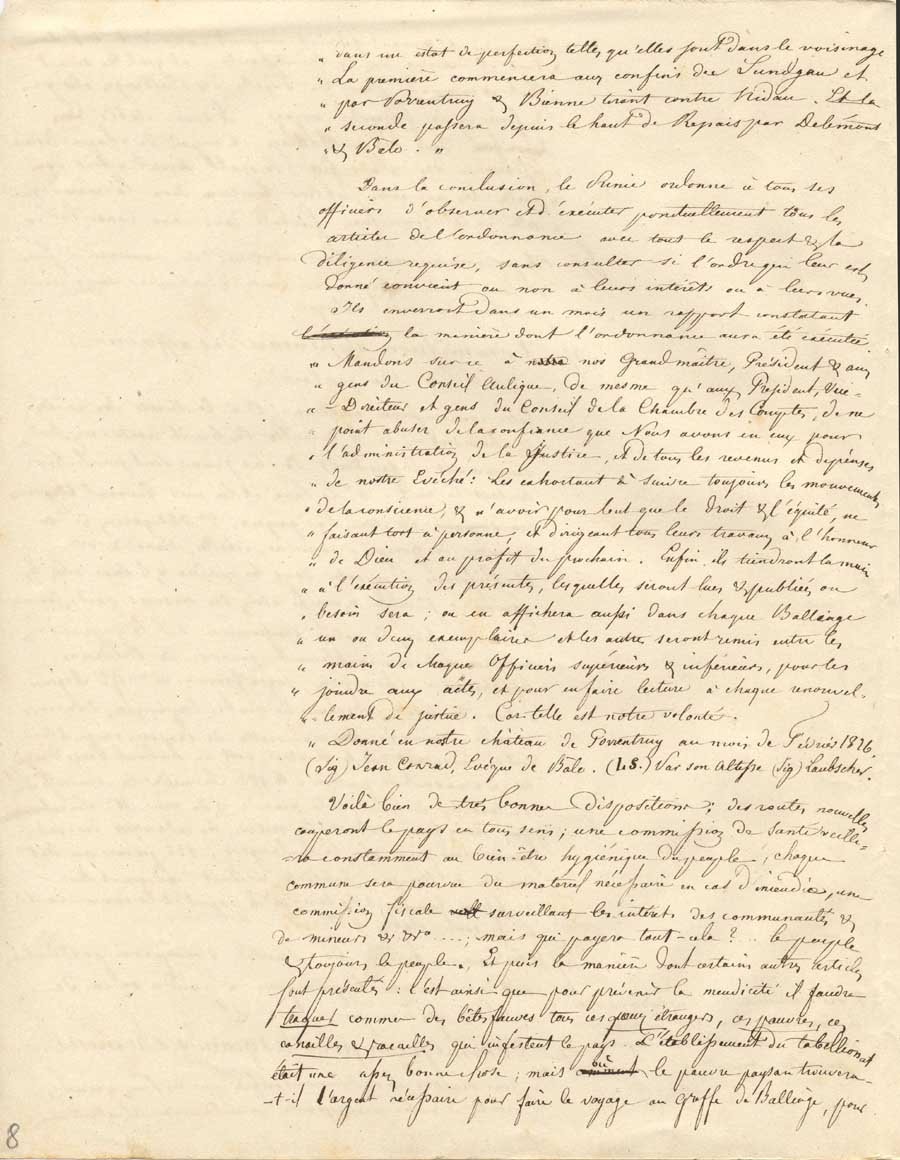 „ dans un estat de perfection telles, qu'elles sont dans le voisinage
„ La première commencera aux confins du Sundgau et
„ par Porrentruy & Bienne tirant contre Nidau. Et la
„ seconde passera depuis le haut de Repais par Delémont
„ & Bâle. „
Dans la conclusion, le Prince ordonne à tous ses
officiers d'observer et d'exécuter ponctuellement tous les
articles de l'ordonnance avec tout le respect & la
diligence requise, sans consulter si l'ordre qui leur est
donné convient ou non à leurs intérêts ou à leurs vues.
Ils enverront dans un mois un rapport constatant
la manière dont l'ordonnance aura été exécutée.
„ Mandons sur ce à nos Grand maître, Président & aux
„ gens du Conseil Aulique, de mesme qu'aux Président, Vice-
„ - Directeur et gens du Conseil de la Chambre des Comptes, de ne
„ point abuser de la confiance que Nous avons en eux pour
„ l'administration de la Justice, et de tous les revenus et dépenses
„ de nostre Evêché: Les exhortant à suivre toujours les mouvements
„ de la conscience, & n'avoir pour but que le droit & l'équité, ne
„ faisant tort à personne, et dirigeant tous leurs travaux à l'honneur
„ de Dieu et au profit du prochain. Enfin, ils tiendront la main
„ à l'exécution des présentes, lesquelles seront lues & publiées ou
„ besoin sera; on en affichera aussi dans chaque Balliage
„ un ou deux exemplaires et les autres seront remis entre les
„ mains de chaque Officiers supérieurs & inférieurs, pour les
„ joindre aux actes, et pour en faire lecture à chaque renouvel-
„ lement de justice. Car telle est notre volonté.
„ Donné en nostre château de Porrentruy au mois de Février 1726.
(Sig) Jean Conrad, Evêque de Bâle. (L.S.) Par son Altesse (Sig) Laubscher.
Voilà bien de très bonnes dispositions; des routes nouvelles
couperont le pays en tous sens; une commission de santé veille-
-ra constamment au bien-être hygiénique du peuple; chaque
commune sera pourvue du matériel nécessaire en cas d'incendie, une
commission fiscale surveillant les intérêts des communautés &
de mineurs &. &a. ....; mais qui payera tout-cela? .. le peuple
& toujours le peuple. Et puis la manière dont certains autres articles
sont présentés: c'est ainsi que pour prévenir la mendicité il faudra
traquer comme des bêtes fauves tous ces gueux étrangers, ces pauvres, ces
canailles & racailles qui infestent le pays. L'établissement du tabellionat
était une assez bonne chose; mais où le pauvre paysan trouvera-
-t-il l'argent nécessaire pour faire le voyage au Greffe de Balliage, pour
8